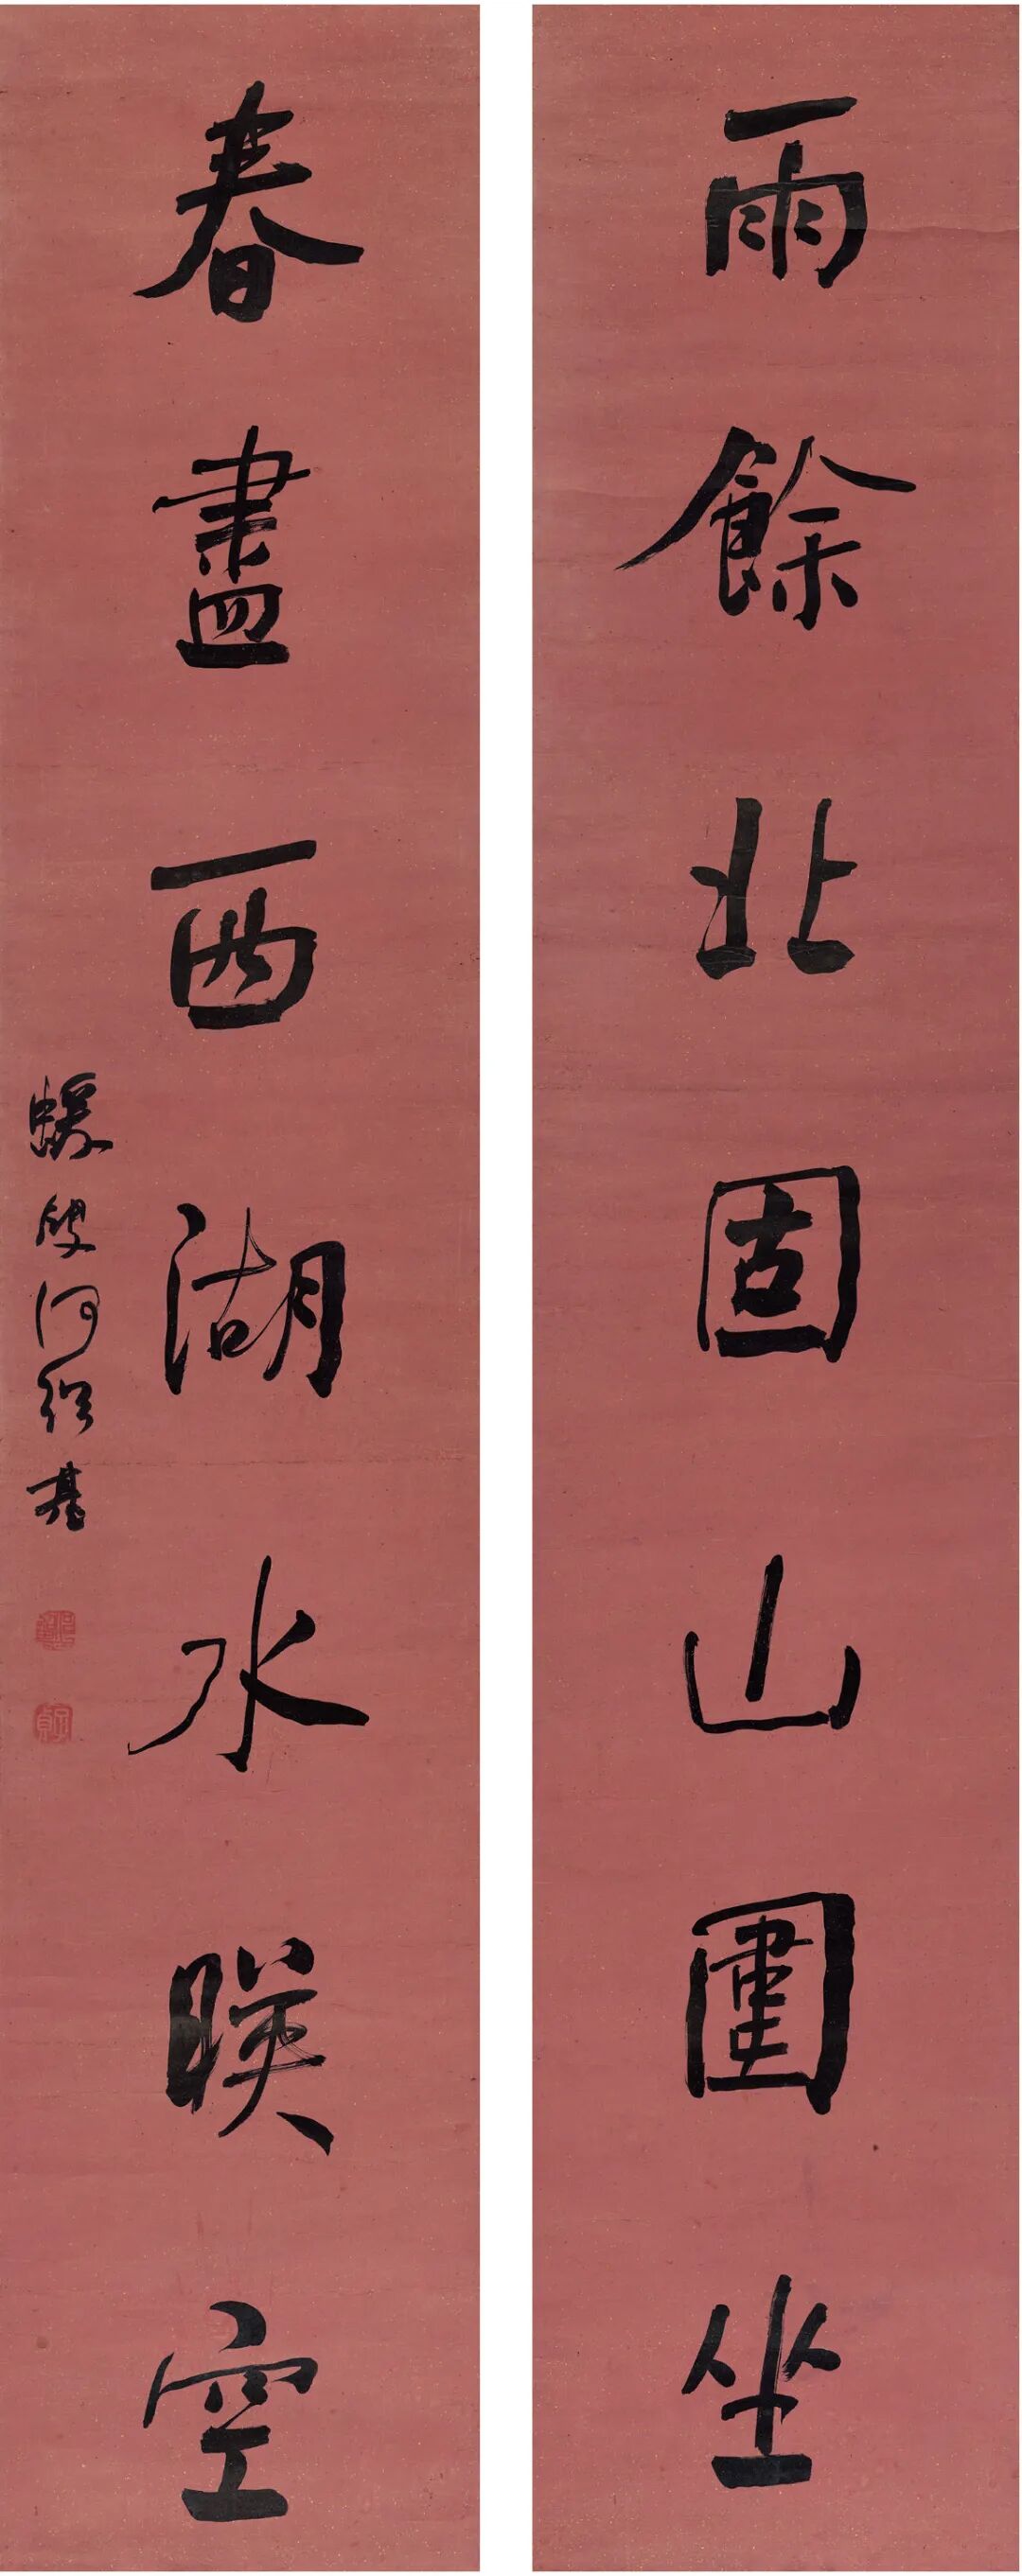 雨餘北固山圍坐
春盡西湖水暎空
蝯叟何紹基